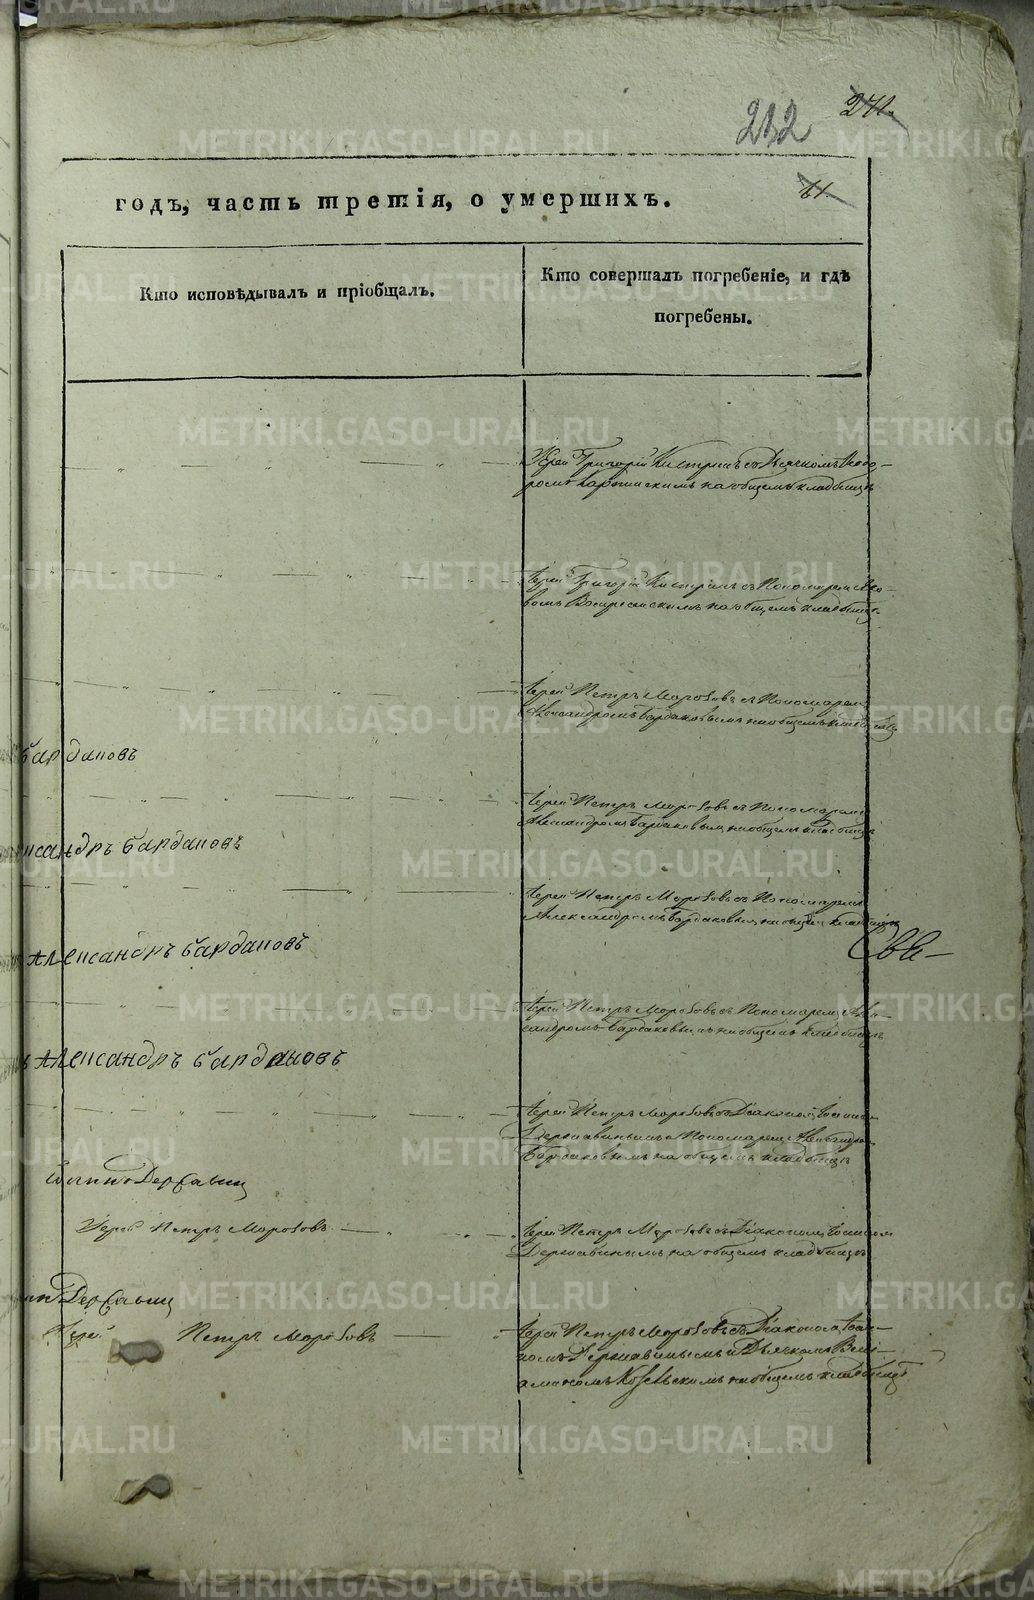 212
241.
61.
годъ, часть третія, о умершихъ.
Кто исповѣдывалъ и пріобщалъ.
Кто совершалъ погребеніе, и гдѣ
погребены.
Іерей Григорій съ Дьячкомъ Ѳедо-
ромъ на общемъ кладбищѣ
Іерей Григорій съ Пономаремъ
Воскресенскимъ на общемъ кладбищѣ
Іерей Петръ Морозовъ съ Пономаремъ
Александромъ Бардаковымъ на общемъ кладбищѣ
Бардаковъ
Іерей Петръ Морозовъ съ Пономаремъ
Александромъ Бардаковымъ на общемъ кладбищѣ
ександръ Бардаковъ
Іерей Петръ Морозовъ съ Пономаремъ
Александромъ Бардаковымъ на общемъ кладбищѣ
Александръ Бардаковъ
Іерей Петръ Морозовъ съ Пономаремъ Алек-
сандромъ Бардаковымъ на общемъ кладбищѣ
Александръ Бардаковъ
Іерей Петръ Морозовъ съ Діакономъ
Державинымъ и Пономаремъ Александромъ
Бардаковымъ на общемъ кладбищѣ
Державинъ
Іерей Петръ Морозовъ
Іерей Петръ Морозовъ съ Діакономъ
Державинымъ на общемъ кладбищѣ
Державинъ
Іерей Петръ Морозовъ
Іерей Петръ Морозовъ съ Діакономъ
Державинымъ и Дьячкомъ Вені-
аминомъ Козельскимъ на общемъ кладбищѣ
METRIKI.GASO-URAL.RU